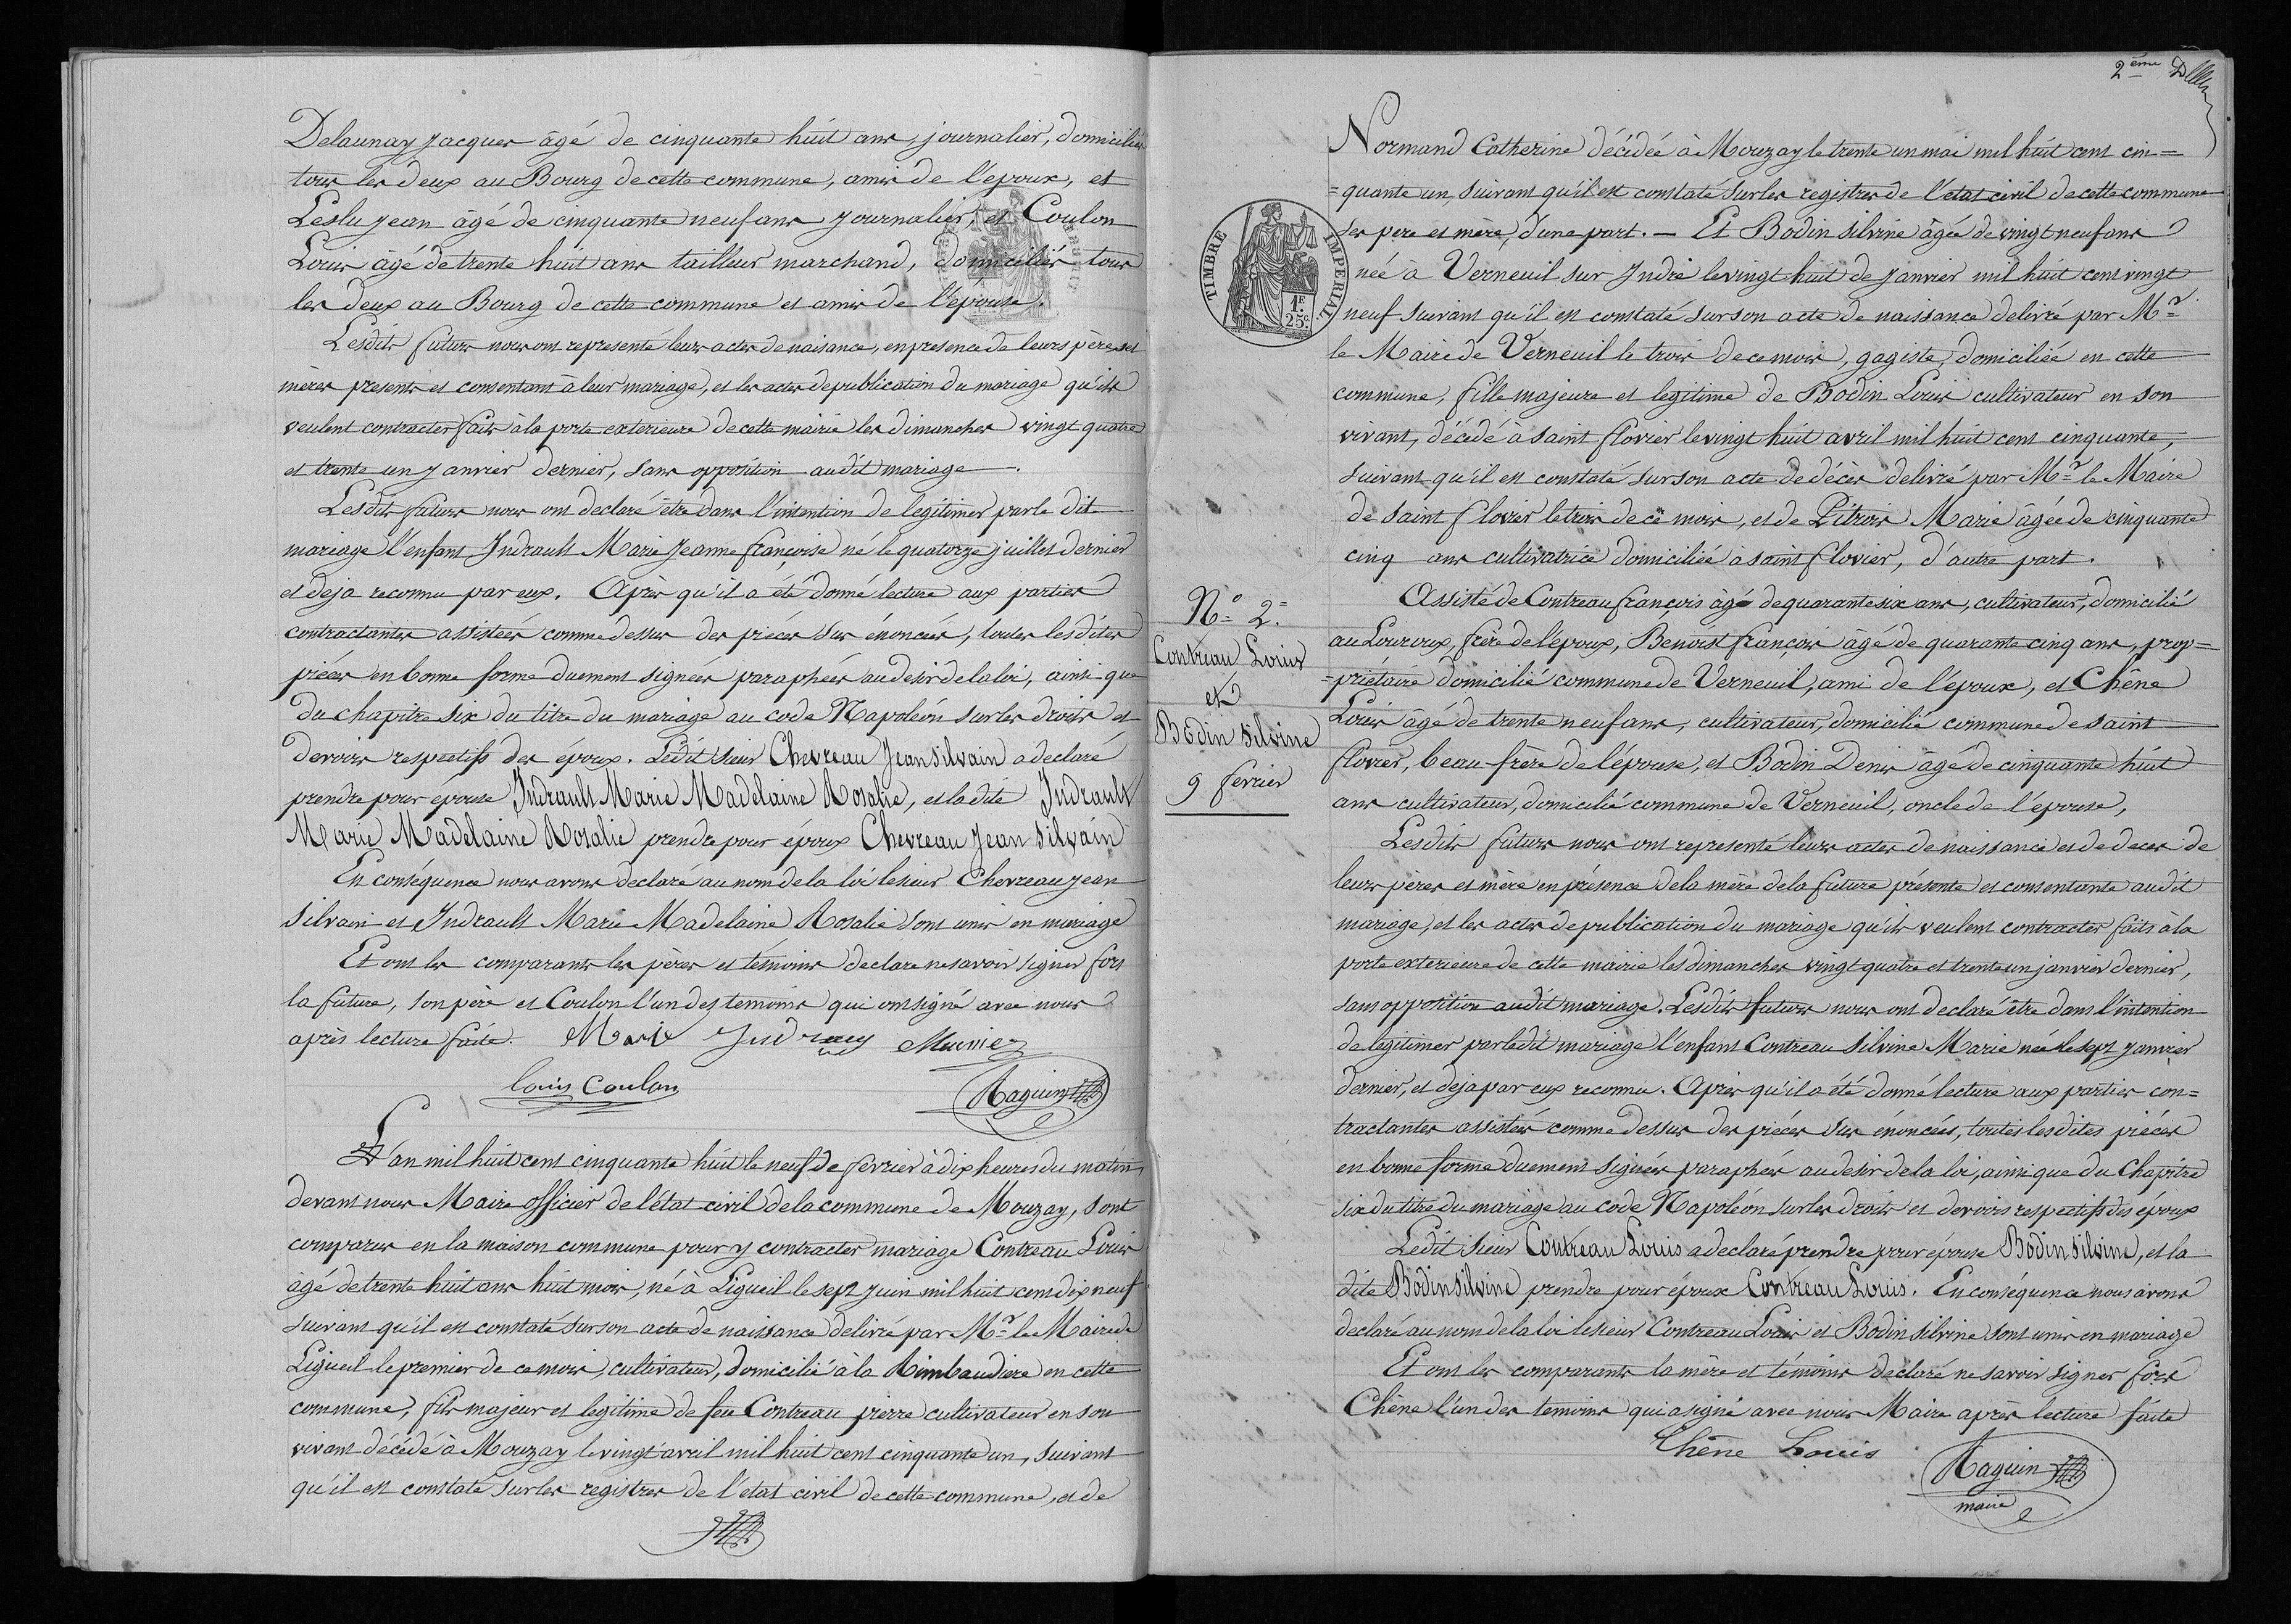 Delaunay Jacques âgé de cinquante huit ans, journalier, domiciliés
tous les deux au Bourg de cette commune, amis de l'époux, et
Leslu Jean âgé de cinquante neuf ans journalier, et Coulon
Louis âgé de trente huit ans tailleur marchand, domiciliés tous
les deux au Bourg de cette commune et amis de l'épouse.
Lesdits futurs nous ont representé leurs actes de naisance, en presence de leurs pères et
mères presents et consentant à leur mariage, et les actes de publication du mariage qu'ils
veulent contracter faits à la porte exterieure de cette mairie les dimanches vingt quatre
et trente un Janvier dernier, sans opposition audit mariage.
Lesdits futurs nous ont declaré être dans l'intention de legitimer par le dit
mariage l'enfant Indrault Marie Jeanne françoise né le quatorze juillet dernier
et deja reconnu par eux. Après qu'il a été donné lecture aux parties
contractantes assistées comme dessus des pièces sus énoncées, toutes lesdites
pièces en bonne forme duement signées paraphées au desir de la loi, ainsi que
du chapitre six du titre du mariage au code Napoléon sur les droits et
devoirs respectifs des époux. Ledit sieur Chevreau Jean Silvain a declaré
prendre pour épouse Indrault Marie Madelaine Rosalie, et la dite Indrault
Marie Madelaine Rosalie prendre pour époux Chevreau Jean Silvain
En conséquence nous avons declaré au nom de la loi le sieur Chevreau Jean
Silvain et Indrault Marie Madelaine Rosalie sont unis en mariage
Et ont les comparants les pères et témoins declaré ne savoir signer fors
la future, son père et Coulon l'un des temoins qui ont signé avec nous
après lecture faite. Marie
Louis Coulon
Raguin
L'an mil huit cent cinquante huit le neuf de fevrier à dix heures du matin,
devant nous Maire officier de l'état civil de la commune de Mouzay, sont
comparus en la maison commune pour y contracter mariage Contreau Louis
âgé de trente huit ans huit mois, né à Ligueil le sept juin mil huit cent dix neuf
suivant qu'il est constaté sur son acte de naissance delivré par Mr le Maire de
Ligueil le premier de ce mois, cultivateur, domicilié à la Rimbaudiere en cette
commune, fils majeur et legitime de feu Contreau pierre cultivateur en son
vivant décédé à Mouzay le vingt avril mil huit cent cinquante un, suivant
qu'il est constaté sur les registres de l'état civil de cette commune, et de
2ème
Normand Catherine décédée à Mouzay le trente un mai mil huit cent cin=
=quante un, suivant qu'il est constaté sur les registres de l'état civil de cette commune
ses pere et mère, d'une part. — Et Bodin silvine âgée de vingt neuf ans
née à Verneuil sur Indre le vingt huit de Janvier mil huit cent vingt
neuf suivant qu'il est constaté sur son acte de naissance delivré par Mr
le Maire de Verneuil le trois de ce mois, gagiste, domiciliée en cette
commune, fille majeure et legitime de Bodin Louis cultivateur en son
vivant, décédé à saint flovier le vingt huit avril mil huit cent cinquante,
suivant qu'il est constaté sur son acte de décès delivré par Mr le Maire
de saint flovier le trois de ce mois, et de Pitrois Marie âgée de cinquante
cinq ans cultivatrice domiciliée à saint flovier, d'autre part.
Assisté de Contreau françois âgé de quarante six ans, cultivateur, domicilié
au Louroux, frère de l'époux, Benoist françois âgé de quarante cinq ans, prop=
=priétaire domicilié commune de Verneuil, ami de l'époux, et Chêne
Louis âgé de trente neuf ans, cultivateur, domicilié commune de saint
flovier, beau-frère de l'épouse, et Bodin Denis âgé de cinquante huit
ans cultivateur, domicilié commune de Verneuil, oncle de l'épouse,
Lesdits futurs nous ont representé leurs actes de naissance et de deces de
leurs pères et mère en présence de la mère de la future présente et consentante audit
mariage, et les actes de publication du mariage qu'ils veulent contracter faits à la
porte exterieure de cette mairie les dimanches vingt quatre et trente un janvier dernier,
sans opposition audit mariage. Lesdits futurs nous ont declaré être dans l'intention
de legitimer par ledit mariage l'enfant Contreau Silvine Marie née le sept Janvier
dernier, et deja par eux reconnu. Après qu'il a été donné lecture aux parties con=
tractantes assistés comme dessus des pièces sus énoncées, toutes lesdites pièces
en bonne forme duement signées paraphées au desir de la loi, ainsi que du Chapitre
six du titre du mariage au code Napoléon sur les droits et devoirs respectifs des époux
Ledit Sieur Contreau Louis a declaré prendre pour épouse Bodin silvine, et la
dite Bodin silvine prendre pour époux Contreau Louis. En conséquence nous avons
declaré au nom de la loi le sieur Contreau Louis et Bodin silvine sont unis en mariage
Et ont les comparants la mère et témoins declaré ne savoir signer fors
Chêne l'un des temoins qui a signé avec nous Maire après lecture faite
Chêne Louis
Raguin
maire
TIMBRE IMPERIAL
1F.
25c.
No 2.
Contreau Louis
et
Bodin silvine
9 fevrier